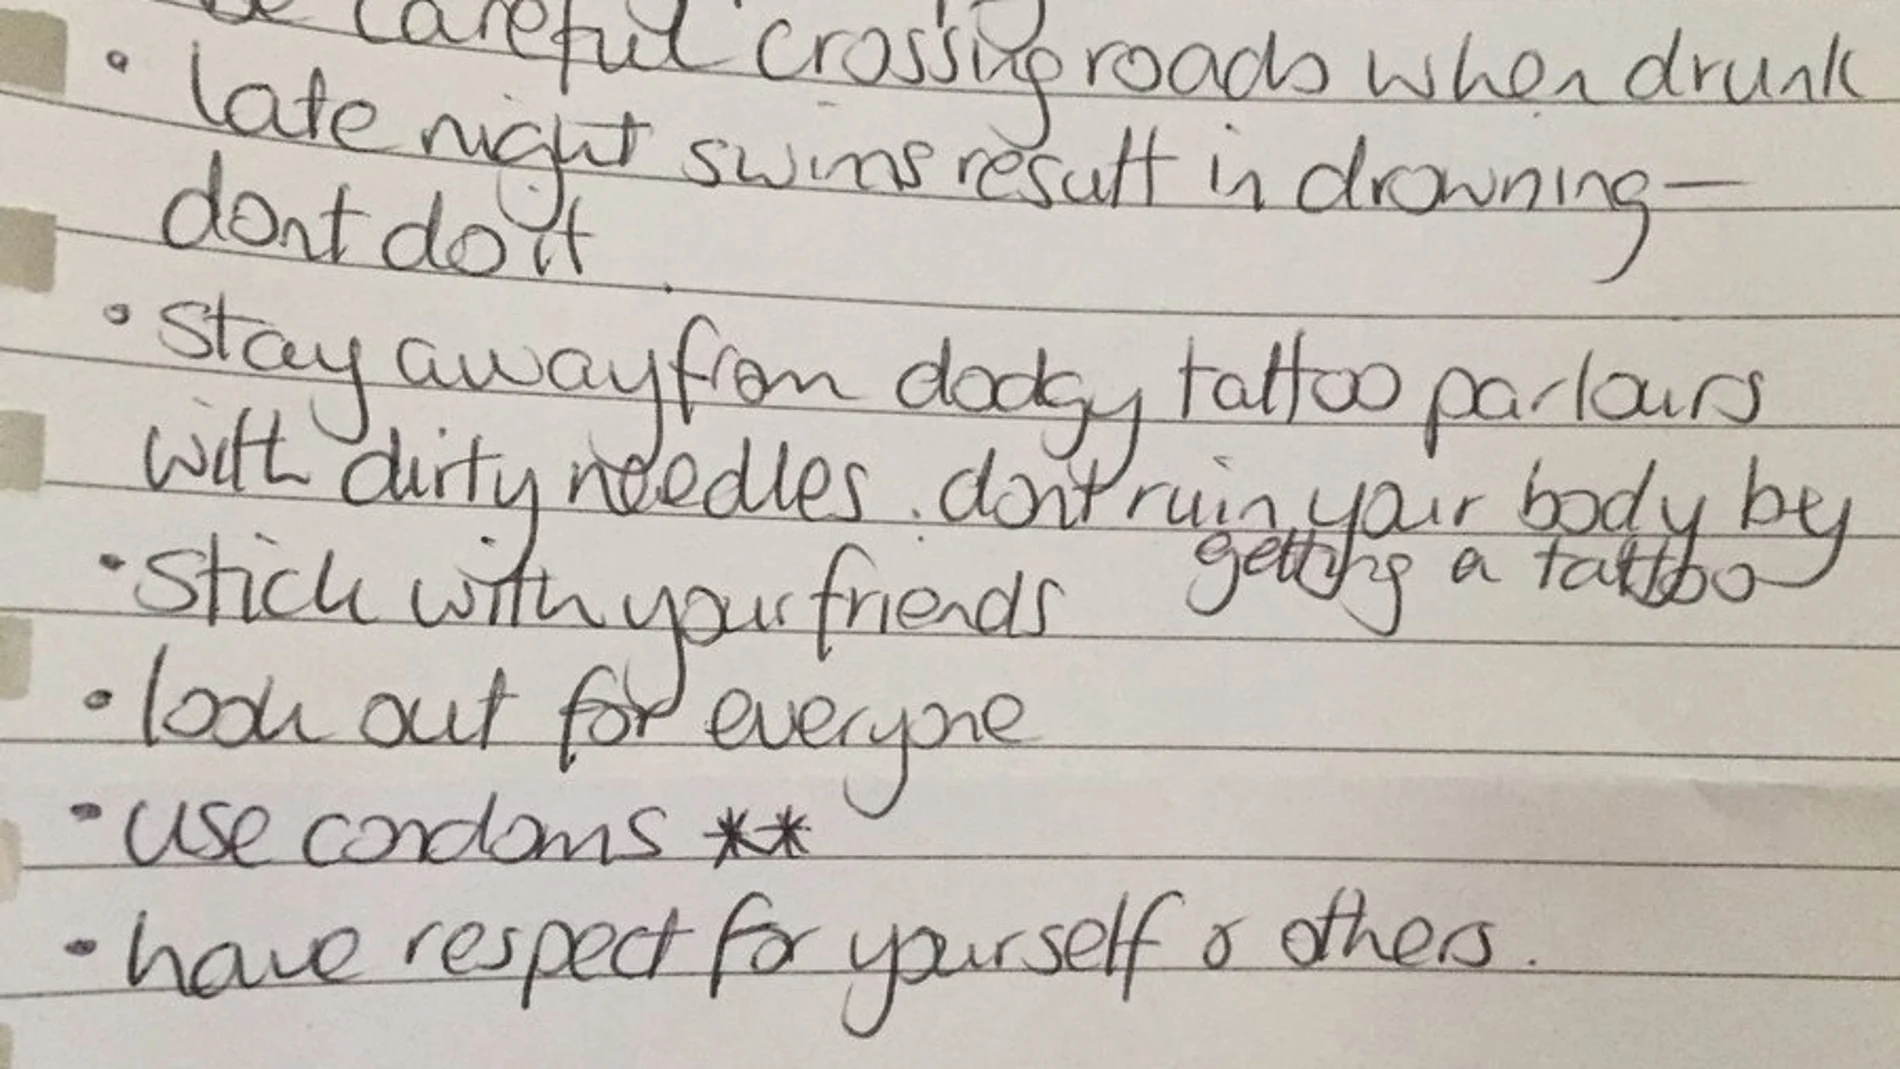 be careful crossing roads when drunk
• late night swims result in drowning —
dont do it
• stay away from dodgy tattoo parlours
with dirty needles. dont ruin your body by
getting a tattoo
• stick with your friends
• look out for everyone
• use condoms **
• have respect for yourself & others.